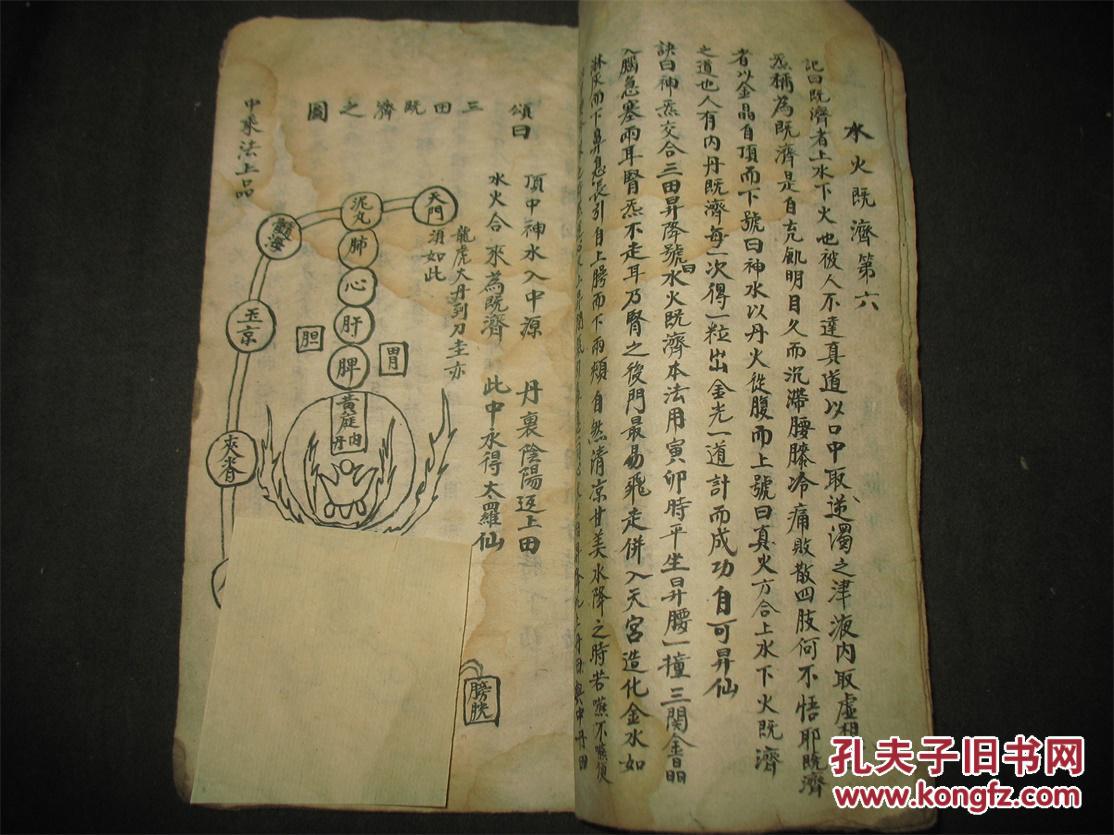 水火既濟第六
記曰既濟者上水下火也被人不達真道以口中取逆濁之津液内取虛相
炁稱為既濟是自充飢明目久而沉滯腰膝冷痛敗散四肢何不悟耶既濟
者以金晶自頂而下號曰神水以丹火從腹而上號曰真火方合上水下火既濟
之道也人有内丹既濟每一次得一粒出金光一道計而成功自可昇仙
訣曰神炁交合三田昇降號曰水火既濟本法用寅卯時平坐昇腰一撞三関金晶
入腦急塞兩耳腎炁不走耳乃腎之後門最易飛走併入天宮造化金水如
淋灰而下鼻息長引自上腭而下兩頰自然清凉甘美水降之時若嚥不嚥便
頌曰
頂中神水入中源 丹裏陰陽返上田
水火合來為既濟 此中永得太羅仙
三田既濟之圖
龍虎大丹到刀圭亦
須如此
天門
泥丸
髓海
玉京
夾脊
肺
心
肝
脾
胆
胃
黃庭
内丹
膀胱
中乘法上品
孔夫子旧书网
www.kongfz.com